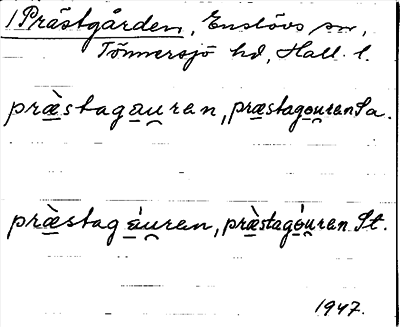 1 Prästgården, Enslövs sn,
Tönnersjö hd, Hall. l.
præ̀stagau̯ren, præstagou̯ren Sa.
præ̀stagáu̯ren, præ̀stagóu̯ren St.
1947.